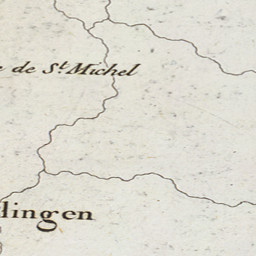 de S.t Michel
lingen